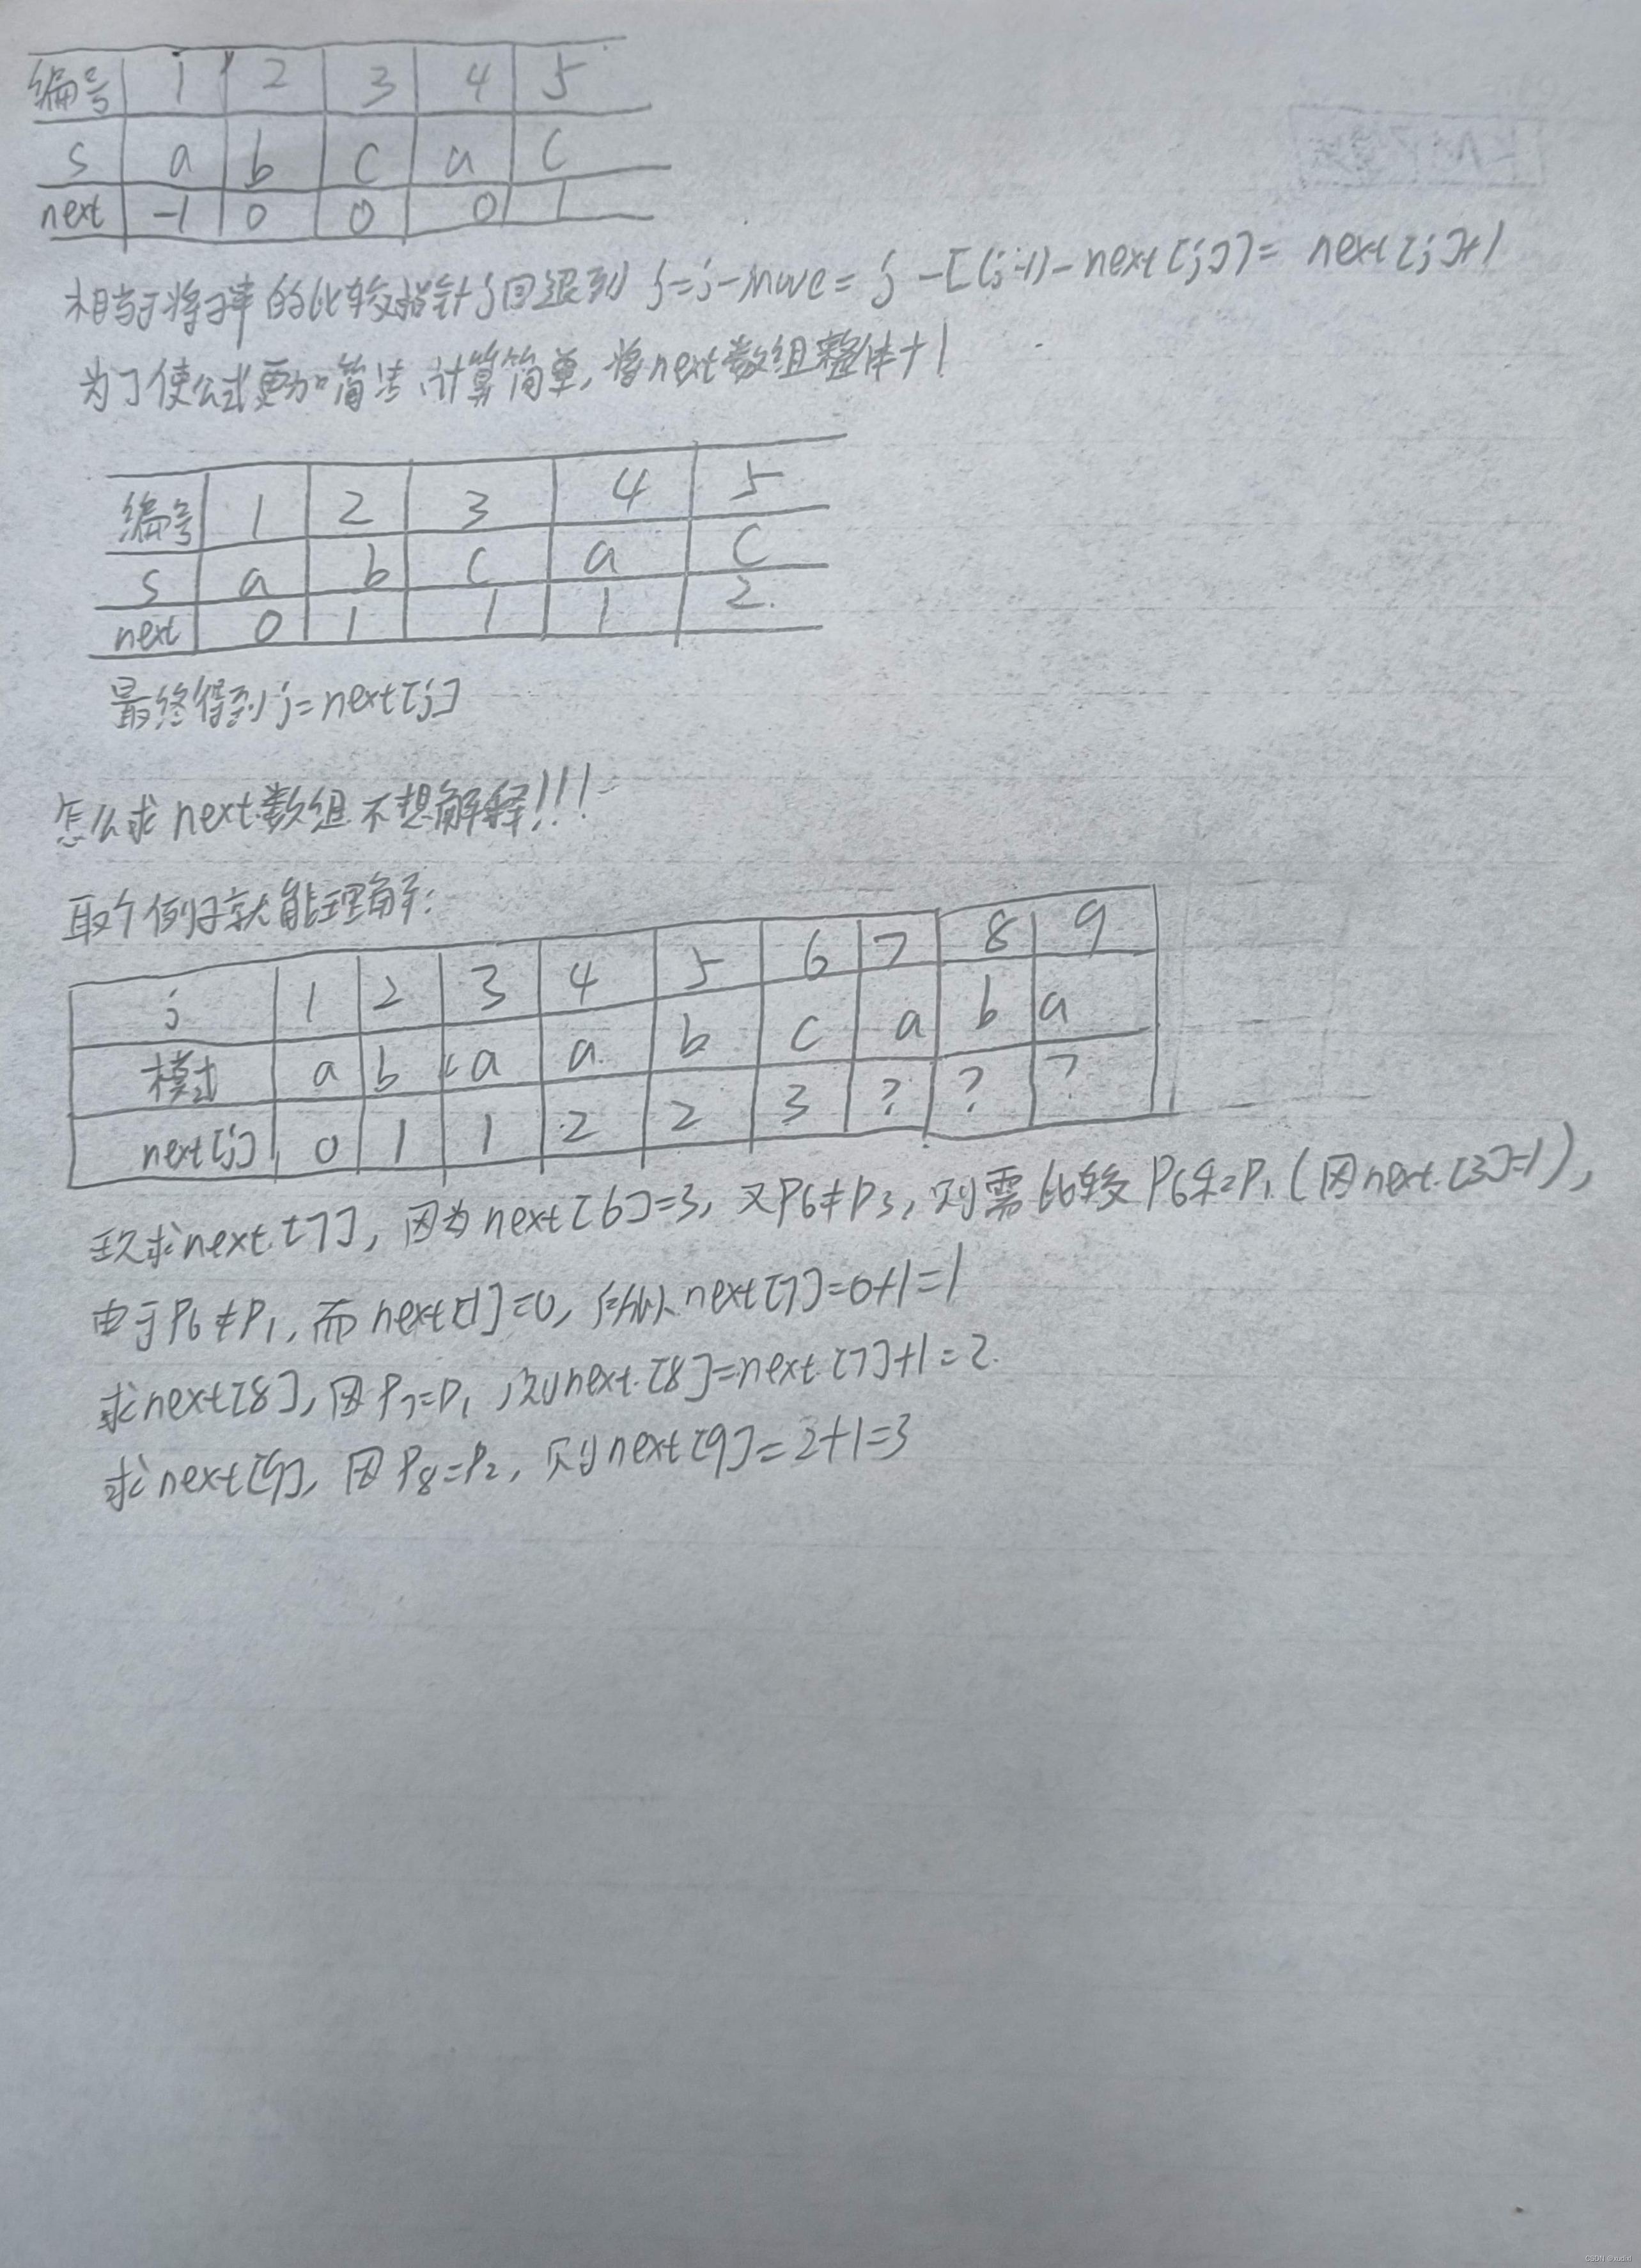 编号 1 2 3 4 5
S a b c a c
next -1 0 0 0 1
相当于将子串的比较指针j回退到 j=j-move= j-[(j-1)-next[j]]= next[j]+1
为了使公式更加简洁、计算简单,将next数组整体+1
编号 1 2 3 4 5
S a b c a c
next 0 1 1 1 2.
最终得到j=next[j]
怎么求next数组不想解释!!!
取个例子就能理解:
j 1 2 3 4 5 6 7 8 9
模式 a b a a b c a b a
next[j] 0 1 1 2 2 3 ? ? ?
现求next[7],因为next[6]=3,又P6≠P3,则需比较P6和P1(因next[3]=1),
由于P6≠P1,而next[1]=0,所以next[7]=0+1=1
求next[8],因P7=P1,则next[8]=next[7]+1=2.
求next[9],因P8=P2,则next[9]=2+1=3